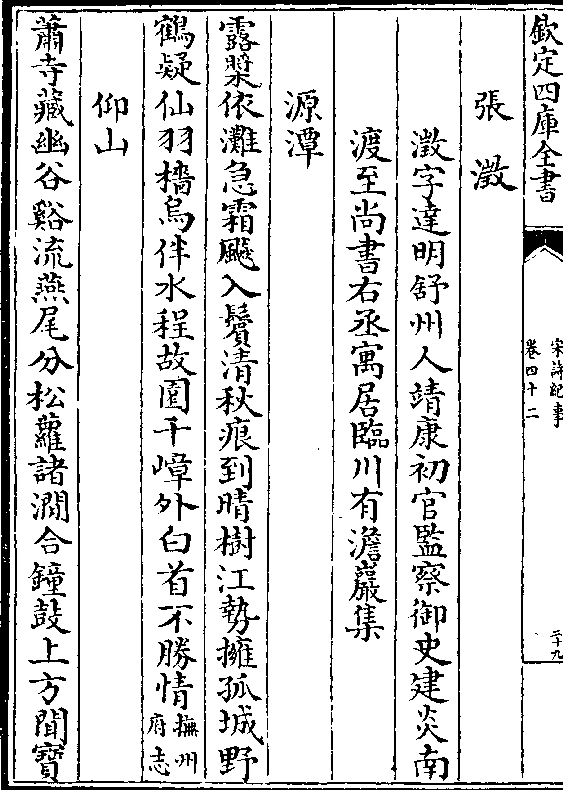 欽定四庫全書
宋詩紀事
卷四十二
二十九
張澂
澂字達明舒州人靖康初官監察御史建炎南
渡至尚書右丞寓居臨川有澹巖集
源潭
露槳依灘急霜颷入鬢清秋痕到晴樹江勢擁孤城野
鶴疑仙羽檣烏伴水程故園千嶂外白首不勝情撫州
府志
仰山
蕭寺藏幽谷谿流燕尾分松蘿諸澗合鐘鼓上方聞寶